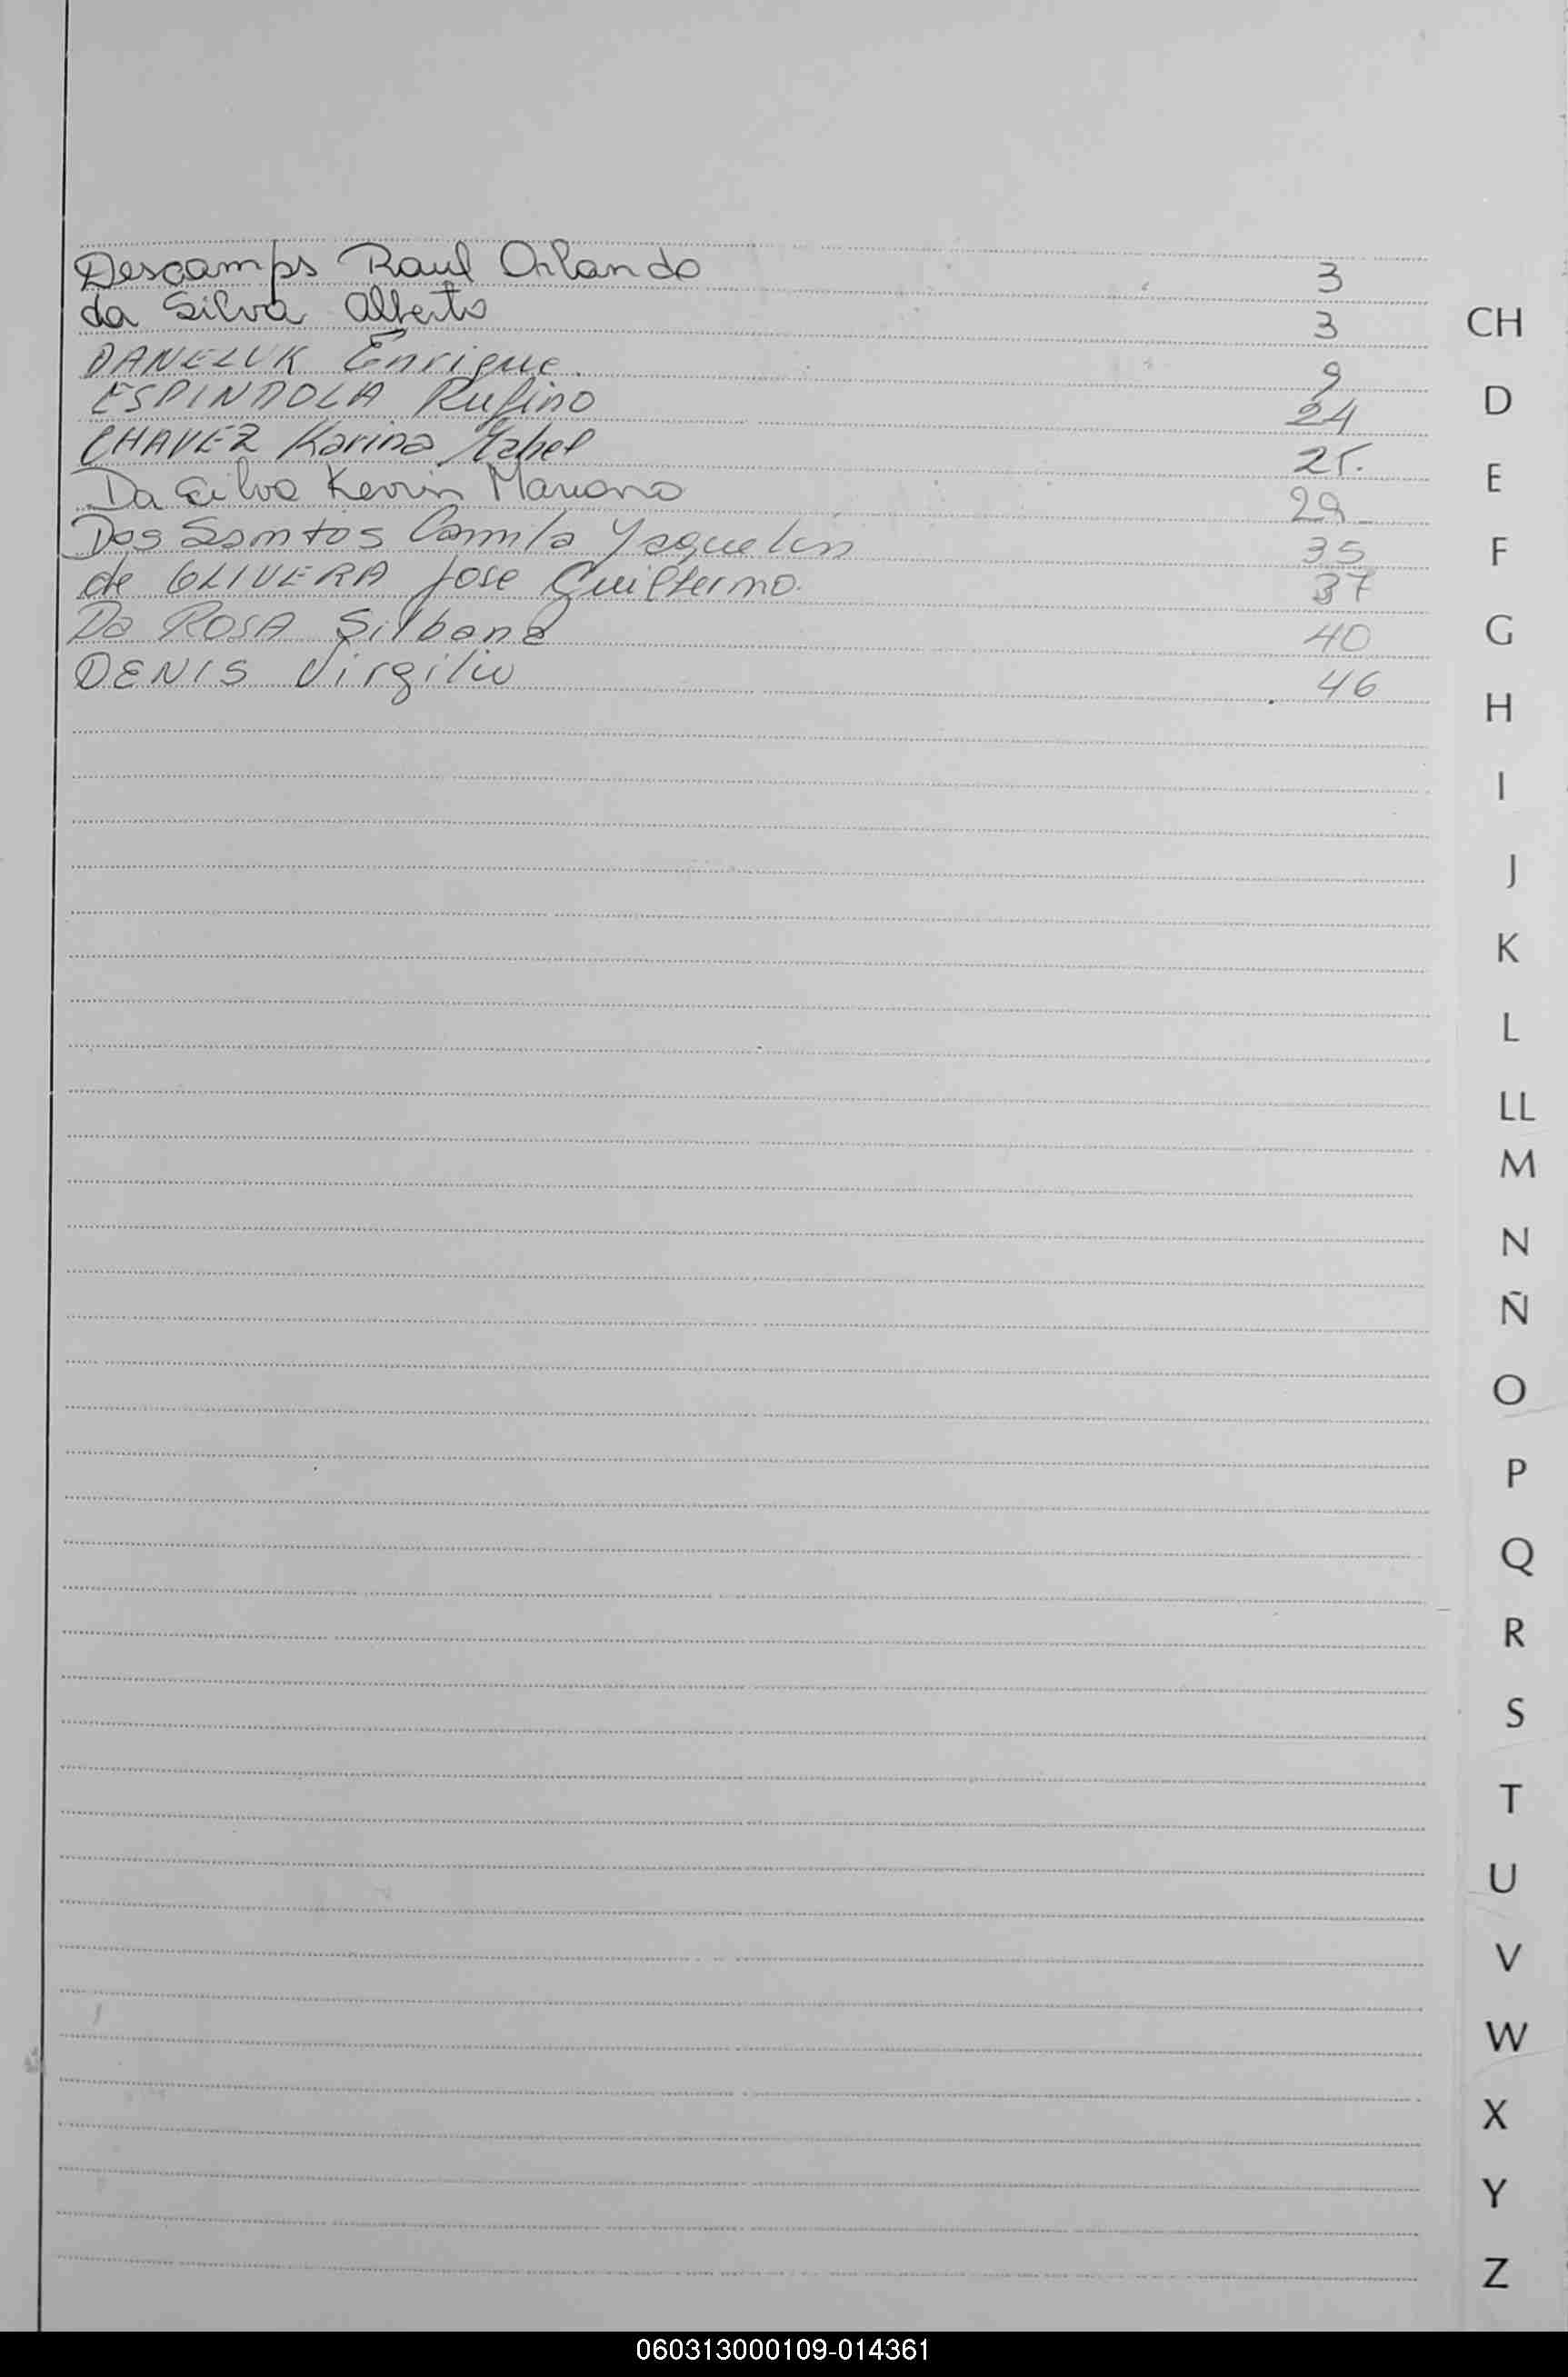 Descamps Raul Orlando 3
da Silva Alberto 3
DANELUK Enrique. 9
ESPINDOLA Rufino 24
CHAVEZ Karina Mabel 25.
Da Silva Kevin Mariano 29
Dos Santos Camila Yaquelin 35
de OLIVERA Jose Guillermo. 37
Da ROSA Silbana 40
DENIS Virgilio 46
CH
D
E
F
G
H
I
J
K
L
LL
M
N
Ñ
O
P
Q
R
S
T
U
V
W
X
Y
Z
060313000109-014361